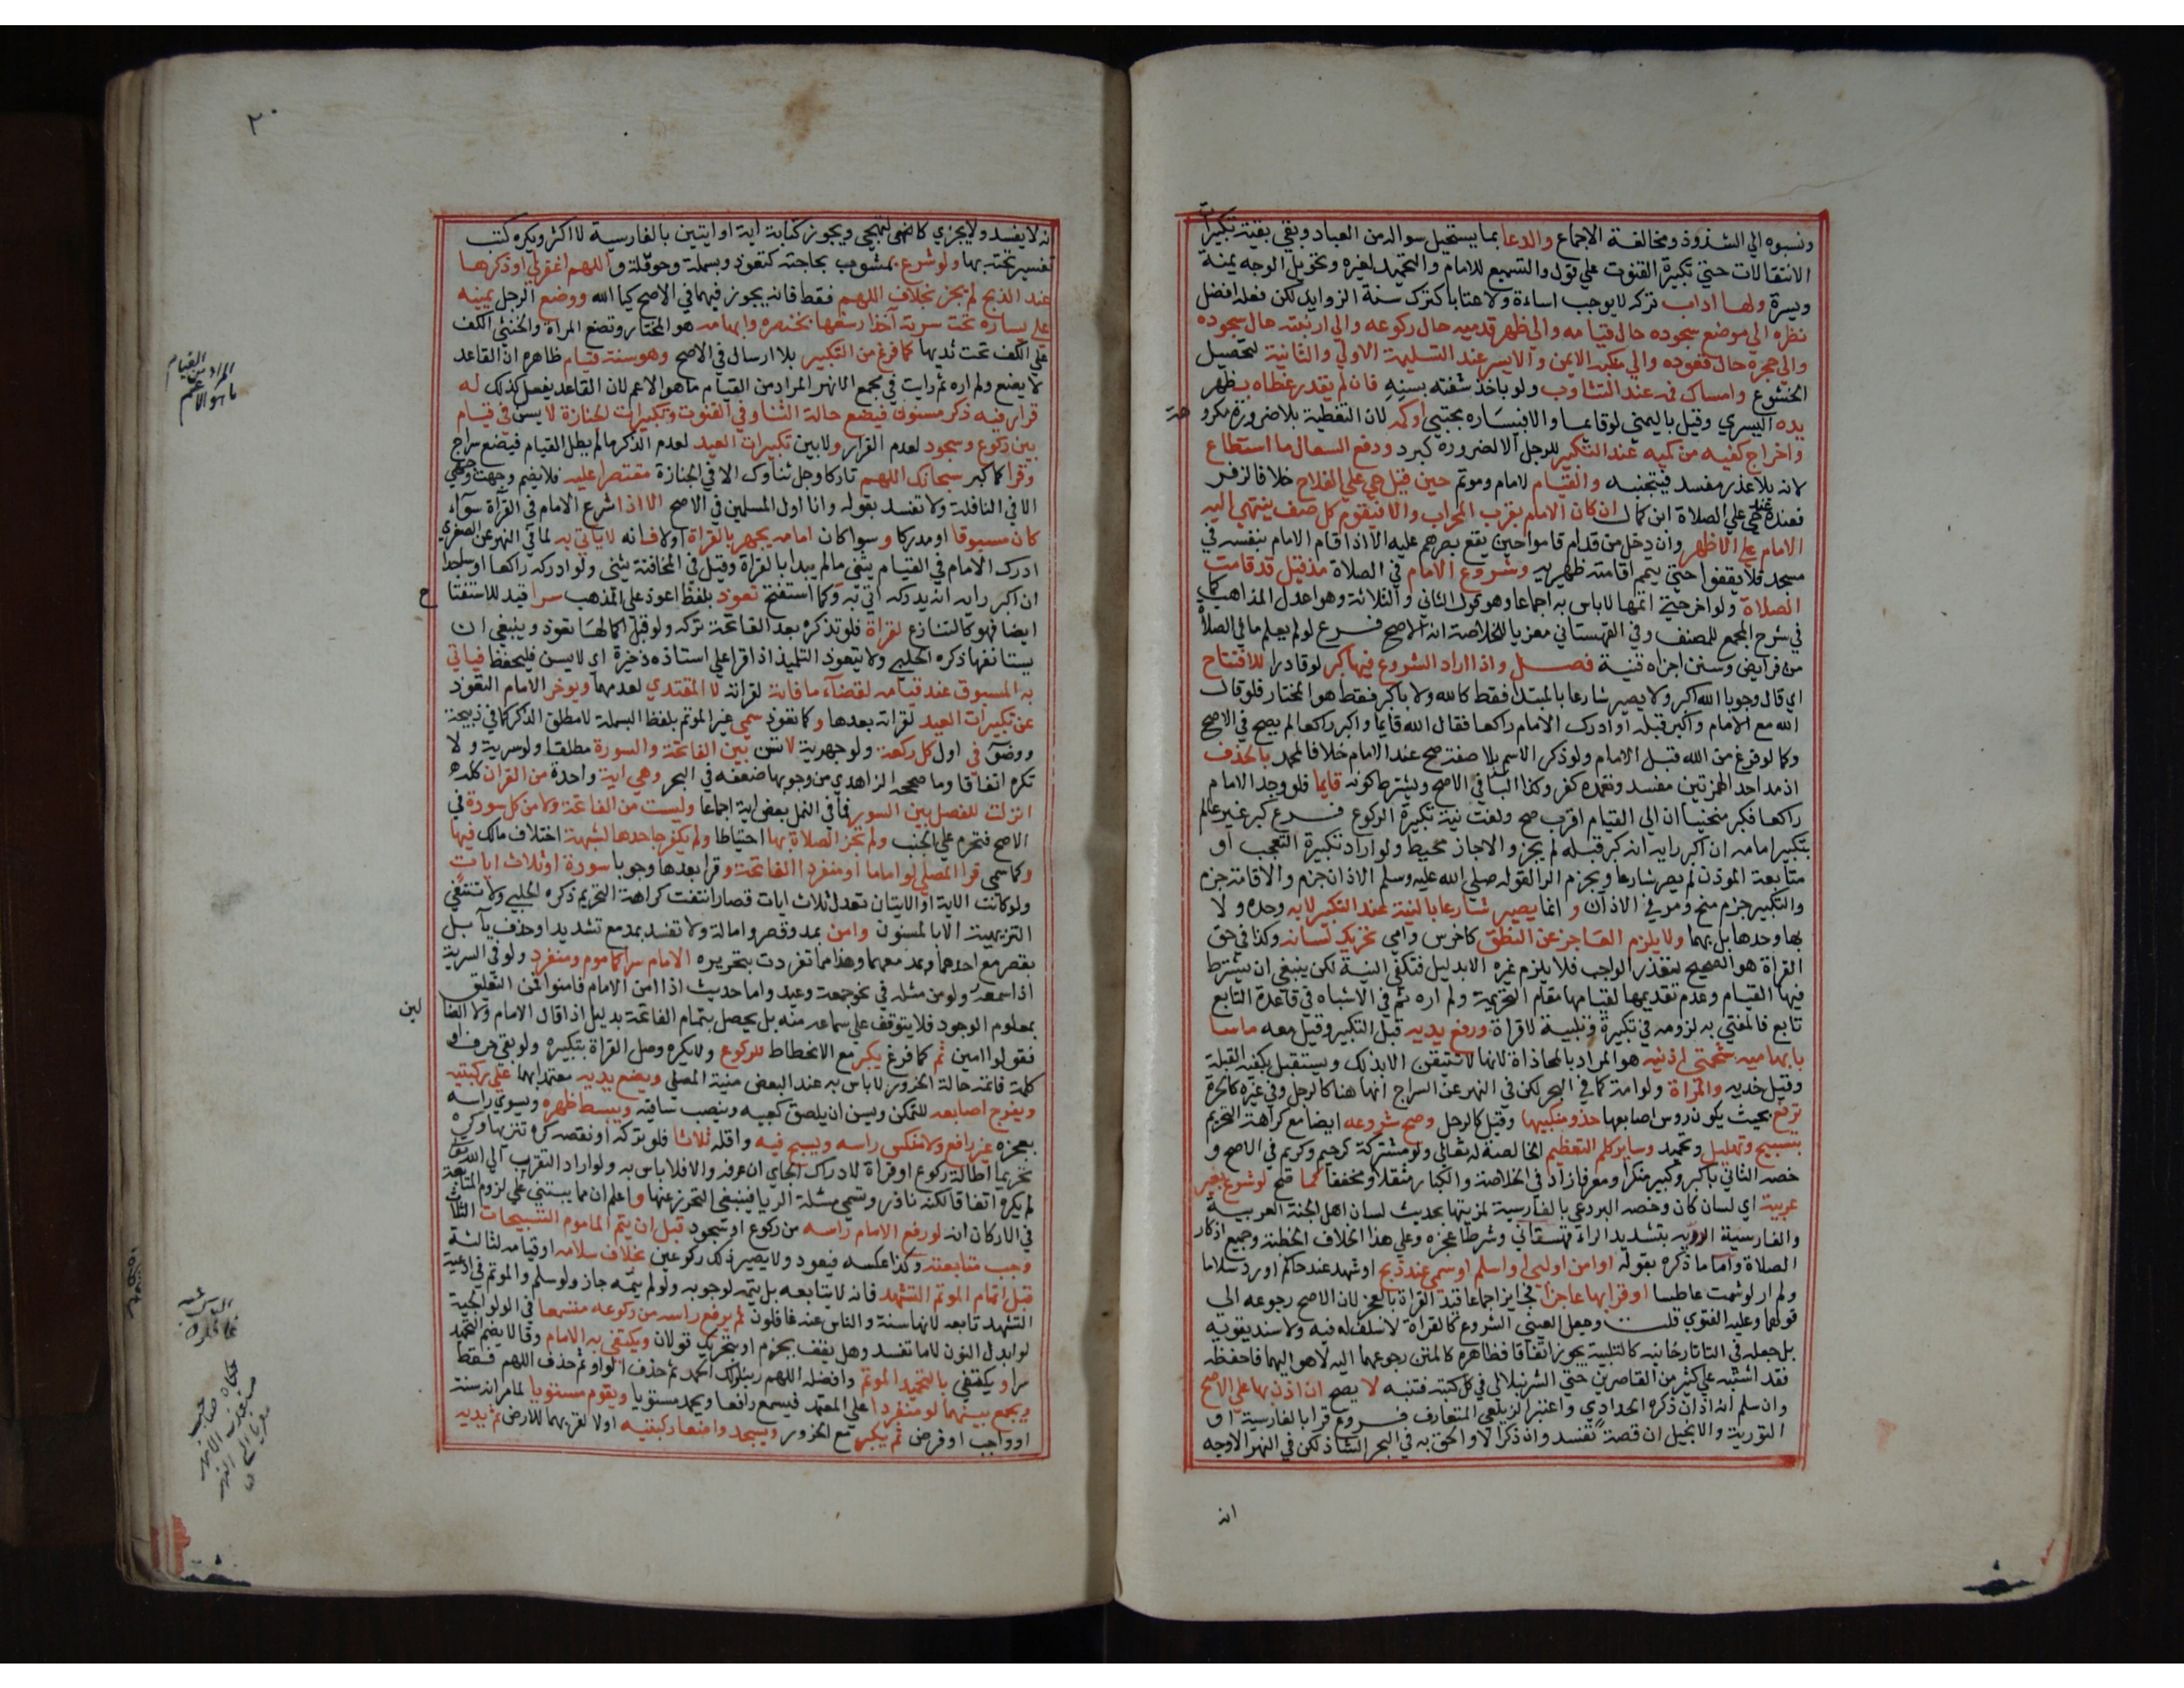 ونسبوه الي الشذوذ ومخالفة الاجماع والدعا بما يستحيل سواله من العباد وبقي بقية تكبيرات
الانتقالات حتي تكبيرة القنوت علي قول والتسميع للامام والتحميد لغيره وتحويل الوجه يمنة
ويسرة ولها اداب تركه لا يوجب اساءة ولا عتابا كترك سنة الزوايد لكن فعله افضل
نظره الي موضع سجوده حال قيامه والي ظهر قدميه حال ركوعه والي ارنبته حال سجوده
والي حجره حال قعوده والي منكبه الايمن والايسر عند التسليمة الاولي والثانية لتحصيل
الخشوع وامساك فمه عند التثاوب ولو باخذ شفته بسنه فان لم يقدر غطاه بظهر
يده اليسري وقيل باليمني لو قايما والا فيساره مجتبي اوكمه لان التغطية بلا ضرورة مكروهة
واخراج كفيه من كميه عند التكبير للرجل الا لضرورة كبرد ودفع السعال ما استطاع
لانه بلا عذر مفسد فيتجنبه والقيام لامام وموتم حين قيل حي علي الفلاح خلافا لزفر
فعنده عند حي علي الصلاة ابن كمال ان كان الامام بقرب المحراب والا فيقوم كل صف ينتهي اليه
الامام علي الاظهر وان دخل من قدام قاموا حين يقع بصرهم عليه الا اذا قام الامام بنفسه في
مسجد فلا يقفوا حتي يتم اقامته ظهيريه وشروع الامام في الصلاة مذ قيل قد قامت
الصلاة ولو اخر حتي اتمها لا باس به اجماعا وهو قول الثاني والثلاثة وهو اعدل المذاهب كما
في شرح المجمع للمصنف وفي القهستاني معزيا للخلاصة انه الاصح فرع لو لم يعلم ما في الصلاة
من فرايض وسنن اجزاه قنية فصل واذا اراد الشروع فيها كبر لو قادرا للافتتاح
اي قال وجوبا الله اكبر ولا يصير شارعا بالمبتدا فقط كالله ولا باكبر فقط هو المختار فلو قال
الله مع الامام واكبر قبله او ادرك الامام راكعا فقال الله قايما واكبر راكعا لم يصح في الاصح
وكما لو فرغ من الله قبل الامام ولو ذكر الاسم بلا صفة صح عند الامام خلافا لمحمد بالحذف
اذ مد احد الهمزتين مفسد وتعمده كفر وكذا البا في الاصح ويشترط كونه قايما فلو وجد الامام
راكعا فكبر منحنيا ان الي القيام اقرب صح ولغت نية تكبيرة الركوع فرع كبر غير عالم
بتكبير امامه ان اكبر رايه انه كبر قبله لم يجز والا جاز محيط ولو اراد بتكبيره التعجب او
متابعة الموذن لم يصر شارعا ويجزم الرا لقوله صلي الله عليه وسلم الاذان جزم والاقامة جزم
والتكبير جزم منح ومر في الاذان و انما يصير شارعا بالنية عند التكبير لا به وحده ولا
بها وحدها بل بهما ولا يلزم العاجز عن النطق كاخرس وامي تحريك لسانه وكذا في حق
القراة هو الصحيح لتعذر الواجب فلا يلزم غيره الا بدليل فتكفي النية لكن ينبغي ان يشترط
فيها القيام وعدم تقديمها لقيامها مقام التحريمة ولم اره ثم في الاشباه في قاعدة التابع
تابع فالمفتي به لزومه في تكبيرة وتلبية لا قراة ورفع يديه قبل التكبير وقيل معه ماسا
بابهاميه شحمتي اذنيه هو المراد بالمحاذاة لانها لا تتيقن الا بذلك ويستقبل بكفيه القبلة
وقيل خديه والمراة ولو امة كما في البحر لكن في النهر عن السراج انها هنا كالرجل وفي غيره كالحرة
ترفع بحيث يكون روس اصابعها حذو منكبيها وقيل كالرجل وصح شروعه ايضا مع كراهة التحريم
بتسبيح وتهليل وتحميد وساير كلم التعظيم الخالصة له تعالي ولو مشتركة كرحيم وكريم في الاصح و
خصه الثاني باكبر وكبير منكرا ومعرفا زاد في الخلاصة والكبار مثقلا ومخففا كما صح لو شرع بغير
عربية اي لسان كان وخصه البردعي بالفارسية لمزيتها بحديث لسان اهل الجنة العربية
والفارسية الدرية بتشديد الراء قهستاني وشرطا عجزه وعلي هذا الخلاف الخطبة وجميع اذكار
الصلاة واما ما ذكره بقوله او امن او لبي او اسلم او سمي عند ذبح او شهد عند حاكم او رد سلاما
ولم ار لو شمت عاطسا او قرا بها عاجزا فجايز اجماعا قيد القراة بالعجز لان الاصح رجوعه الي
قولهما وعليه الفتوي قلت وجعل العيني الشروع كالقراة لا سلف له فيه ولا سند يقويه
بل جعله في التاتارخانيه كالتلبية يجوز اتفاقا فظاهره كالمتن رجوعهما اليه لا هو اليهما فاحفظه
فقد اشتبه علي كثير من القاصرين حتي الشرنبلالي في كل كتبه فتنبه لا يصح ان اذن بها علي الاصح
وان سلم انه اذان ذكره الحدادي واعتبر الزيلعي المتعارف فروع قرا بالفارسية او
التورية والانجيل ان قصة تفسد وان ذكرا لا والحق به في البحر الشاذ لكن في النهر الاوجه
انه
٢٠
انه لا يفسد ولا يجزي كالتهجي ويجوز كتابة اية او ايتين بالفارسية لا اكثر ويكره كتب
تفسيره تحته بها ولو شرع بمشوب بحاجته كتعوذ وبسملة وحوقلة واللهم اغفر لي او ذكرها
عند الذبح لم يجز بخلاف اللهم فقط فانه يجوز فيهما في الاصح كيا الله ووضع الرجل يمينه
علي يساره تحت سرته آخذا رسغها بخنصره وابهامه هو المختار وتضع المراة والخنثي الكف
علي الكف تحت ثديها كما فرغ من التكبير بلا ارسال في الاصح وهو سنة قيام ظاهره ان القاعد
لا يضع ولم اره ثم رايت في مجمع الانهر المراد من القيام ما هو الاعم لان القاعد يفعل كذلك له
قرار فيه ذكر مسنون فيضع حالة الثنا وفي القنوت وتكبيرات الجنازة لا يسن في قيام
بين ركوع وسجود لعدم القرار ولا بين تكبيرات العيد لعدم الذكر ما لم يطل القيام فيضع سراج
وقرا كما كبر سبحانك اللهم تاركا وجل ثناوك الا في الجنازة مقتصرا عليه فلا يضم وجهت وجهي
الا في النافلة ولا تفسد بقوله وانا اول المسلمين في الاصح الا اذا شرع الامام في القرآة سوآء
كان مسبوقا او مدركا وسوا كان امامه يجهر بالقراة اولا فانه لا ياتي به لما في النهر عن الصغري
ادرك الامام في القيام يثني ما لم يبدا بالقراة وقيل في المخافتة يثني ولو ادركه راكعا او ساجدا
ان اكبر رايه انه يدركه اتي به وكما استفتح تعوذ بلفظ اعوذ علي المذهب سرا قيد للاستفتاح
ايضا فهو كالتنازع لقراة فلو تذكره بعد الفاتحة تركه ولو قبل اكمالها تعوذ وينبغي ان
يستانفها ذكره الحلبي ولا يتعوذ التلميذ اذا قرا علي استاذه ذخيرة اي لا يسن فليحفظ فياتي
به المسبوق عند قيامه لقضآء ما فاته لقراته لا المقتدي لعدمها ويوخر الامام التعوذ
عن تكبيرات العيد لقراته بعدها وكما تعوذ سمي غير الموتم بلفظ البسملة لا مطلق الذكر كما في ذبيحة
ووضوء في اول كل ركعة ولو جهرية لا تسن بين الفاتحة والسورة مطلقا ولو سرية ولا
تكره اتفاقا وما صححه الزاهدي من وجوبها ضعفه في البحر وهي اية واحدة من القران كله
انزلت للفصل بين السور فما في النمل بعض اية اجماعا وليست من الفاتحة ولا من كل سورة في
الاصح فتحرم علي الجنب ولم تجز الصلاة بها احتياطا ولم يكفر جاحدها لشبهة اختلاف مالك فيها
وكما سمي قرا المصلي لو اماما او منفردا الفاتحة وقرا بعدها وجوبا سورة او ثلاث ايات
ولو كانت الاية او الايتان تعدل ثلاث ايات قصار انتفت كراهة التحريم ذكره الحلبي ولا تنتفي
التنزيهية الا بالمسنون وامن بمد وقصر وامالة ولا تفسد بمد مع تشديد او حذف يآ بل
بقصر مع احدهما وبمد معهما وهذا مما تفردت بتحريره الامام سرا كماموم ومنفرد ولو في السرية
اذا سمعه ولو من مثله في نحو جمعة وعيد واما حديث اذا امن الامام فامنوا فمن التعليق
بمعلوم الوجود فلا يتوقف علي سماعه منه بل يحصل بتمام الفاتحة بدليل اذا قال الامام ولا الضالين
فقولوا امين ثم كما فرغ يكبر مع الانحطاط للركوع ولا يكره وصل القراة بتكبيره ولو بقي حرف او
كلمة فاتمه حالة الخرور لا باس به عند البعض منية المصلي ويضع يديه معتمدا بهما علي ركبتيه
ويفرج اصابعه للتمكن ويسن ان يلصق كعبيه وينصب ساقيه ويبسط ظهره ويسوي راسه
بعجزه غير رافع ولا منكس راسه ويسبح فيه واقله ثلاثا فلو تركه او نقصه كره تنزيها وكره
تحريما اطالة ركوع او قراة لادراك الجاي ان عرفه والا فلا باس به ولو اراد التقرب الي الله تعالي
لم يكره اتفاقا لكنه نادر وتسمي مسئلة الريا فينبغي التحرز عنها واعلم ان مما يبتني علي لزوم المتابعة
في الاركان انه لو رفع الامام راسه من ركوع او سجود قبل ان يتم الماموم التسبيحات الثلاث
وجب متابعته وكذا عكسه فيعود ولا يصير ذلك ركوعين بخلاف سلامه او قيامه لثالثة
قبل اتمام الموتم التشهد فانه لا يتابعه بل يتمه لوجوبه ولو لم يتمه جاز ولو سلم والموتم في ادعية
التشهد تابعه لانها سنة والناس عنه غافلون ثم يرفع راسه من ركوعه مسمعا في الولوالجية
لو ابدل النون لاما تفسد وهل يقف بجزم او تحريك قولان ويكتفي به الامام وقالا يضم التحميد
سرا ويكتفي بالتحميد الموتم وافضله اللهم ربنا ولك الحمد ثم حذف الواو ثم حذف اللهم فقط
ويجمع بينهما لو منفردا علي المعتمد فيسمع رافعا ويحمد مستويا ويقوم مستويا لما مر انه سنة
او واجب او فرض ثم يكبر مع الخرور ويسجد واضعا ركبتيه اولا لقربهما للارض ثم يديه
المراد من القيام
ما هو الاعم